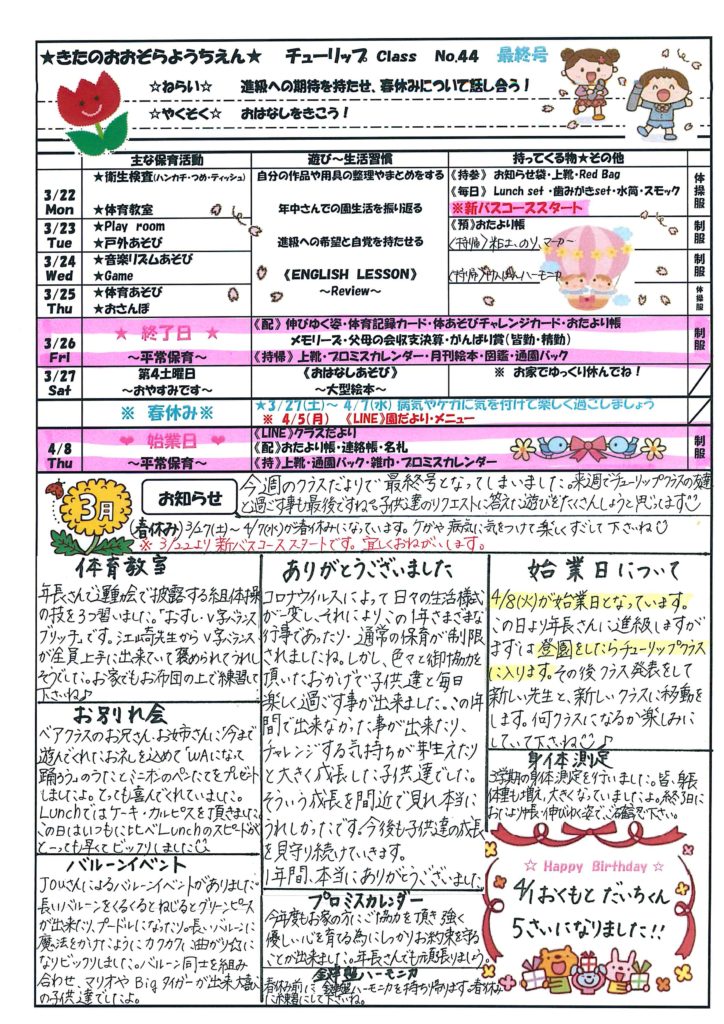 ★きたのおおぞらようちえん★ チューリップ Class No.44 最終号
☆ねらい☆ 進級への期待を持たせ、春休みについて話し合う！
☆やくそく☆ おはなしをきこう！
主な保育活動 遊び～生活習慣 持ってくる物★その他
3/22 Mon
★衛生検査(ハンカチ・つめ・ティッシュ)
★体育教室
自分の作品や用具の整理やまとめをする
《持参》 お知らせ袋・上靴・Red Bag
《毎日》 Lunch set ・歯みがきset・水筒・スモック
※新バスコーススタート
体操服
3/23 Tue
★Play room
★戸外あそび
年中さんでの園生活を振り返る
《預》おたより帳
制服
3/24 Wed
★音楽リズムあそび
★Game
進級への希望と自覚を持たせる
《ENGLISH LESSON》
～Review～
制服
3/25 Thu
★体育あそび
★おさんぽ
体操服
3/26 Fri
★ 終了日 ★
～平常保育～
《配》伸びゆく姿・体育記録カード・体あそびチャレンジカード・おたより帳
メモリーズ・父母の会収支決算・がんばり賞(皆勤・精勤)
《持帰》上靴・プロミスカレンダー・月刊絵本・図鑑・通園バック
制服
3/27 Sat
第4土曜日
～おやすみです～
《おはなしあそび》
～大型絵本～
※ お家でゆっくり休んでね！
※ 春休み※
★3/27(土)～ 4/7(水) 病気やケガに気を付けて楽しく過ごしましょう
※ 4/5(月) 《LINE》園だより・メニュー
4/8 Thu
❤ 始業日 ❤
～平常保育～
《LINE》クラスだより
《配》おたより帳・連絡帳・名札
《持》上靴・通園バック・雑巾・プロミスカレンダー
制服
3月
お知らせ
今週のクラスだよりで最終号となってしまいました。来週でチューリップクラスの友達
と過ごす事も最後ですね。子供達のリクエストに答えた遊びをたくさんしようと思ってます
(春休み) 3/27(土)～4/7(水)が春休みになっています。ケガや病気に気をつけて楽しくすごして下さいね
※ 3/22より新バスコーススタートです。宜しくおねがいします。
体育教室
年長さんで運動会で披露する組体操
の技を3つ習いました。「おすし・V字バランス
ブリッヂ」です。江崎先生からV字バランス
が全員上手に出来ていて褒められてうれし
そうでした。お家でもお布団の上で練習して
下さいね♪
お別れ会
ベアクラスのお兄さん、お姉さんに今まで
遊んでくれたお礼を込めて「WAになって
踊ろう」のうたとミニオンのペンたてをプレゼント
しましたよ。とっても喜んでくれていました。
Lunchではケーキ・カルピスを頂きました。
この日はいつもに比べLunchのスピードが
と～っても早くてビックリしました
バルーンイベント
JOUさんによるバルーンイベントがありました
長いバルーンをくるくるとねじるとグリーンピース
が出来たり、プードルになったり。長いバルーンに
魔法をかけたようにカクカクに曲がり☆に
なりビックリしました。バルーン同士を組み
合わせ、マリオやBigタイガーが出来大喜び
の子供達でしたよ。
ありがとうございました
コロナウイルスによって日々の生活様式
が一変し、それにより、この1年さまざまな
行事であったり・通常の保育が制限
されましたね。しかし、色々と御協力を
頂いたおかげで子供達と毎日
楽しく過ごす事が出来ました。この1年
間で出来なかった事が出来たり、
チャレンジする気持ちが芽生えたり
と大きく成長した子供達でした。
そういう成長を間近で見れ本当に
うれしかったです。今後も子供達の成長
を見守り続けていきます。
1年間、本当にありがとうございました
プロミスカレンダー
今年度もお家の方にご協力を頂き強く
優しい心を育てる為にしっかりお約束を守る
ことが出来ました。年長さんでも頑張りましょう。
鍵盤ハーモニカ
春休み前に鍵盤ハーモニカを持ち帰ります。春休み
に練習して下さいね。
始業日について
4/8(火)が始業日となっています。
この日より年長さんに進級しますが
まずは登園をしたらチューリップクラス
に入ります。その後クラス発表をして
新しい先生と、新しいクラスに移動を
します。何クラスになるか楽しみに
していて下さいね♪
身体測定
3学期の身体測定を行いました。皆、身長
体重も増え、大きくなっていましたよ。終了日に
おたより帳・伸びゆく姿で、ご確認下さい。
☆ Happy Birthday ☆
4/1おくもと だいちくん
5さいになりました!!